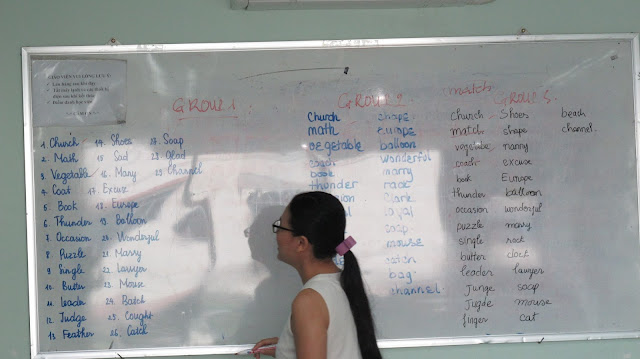 GROUP 1
1. Church 14. Shoes Soap
2. Math 15. Sad Glad
3. Vegetable 16. Many Channel
4. Coat 17. Excuse
5. Book 18. Europe
6. Thunder 19. Balloon
7. Occasion 20. Wonderful
8. Puzzle 21. Marry
9. Single 22. Lawyer
10. Butter 23. Mouse
11. leader 24. Batch
12. Judge 25. Cought
13. Feather 26. Catch
GROUP 2
Church shape
math europe
vegetable balloon
coach wonderful
book marry
thunder
soap
mouse
catch
bag
channel
match GROUP 3
church Shoes beach
match shape channel
vegetable many
coach excuse
book Europe
thunder balloon
occasion wonderful
puzzle marry
single rock
butter clock
leader lawyer
Junge soap
Jugde mouse
finger cat